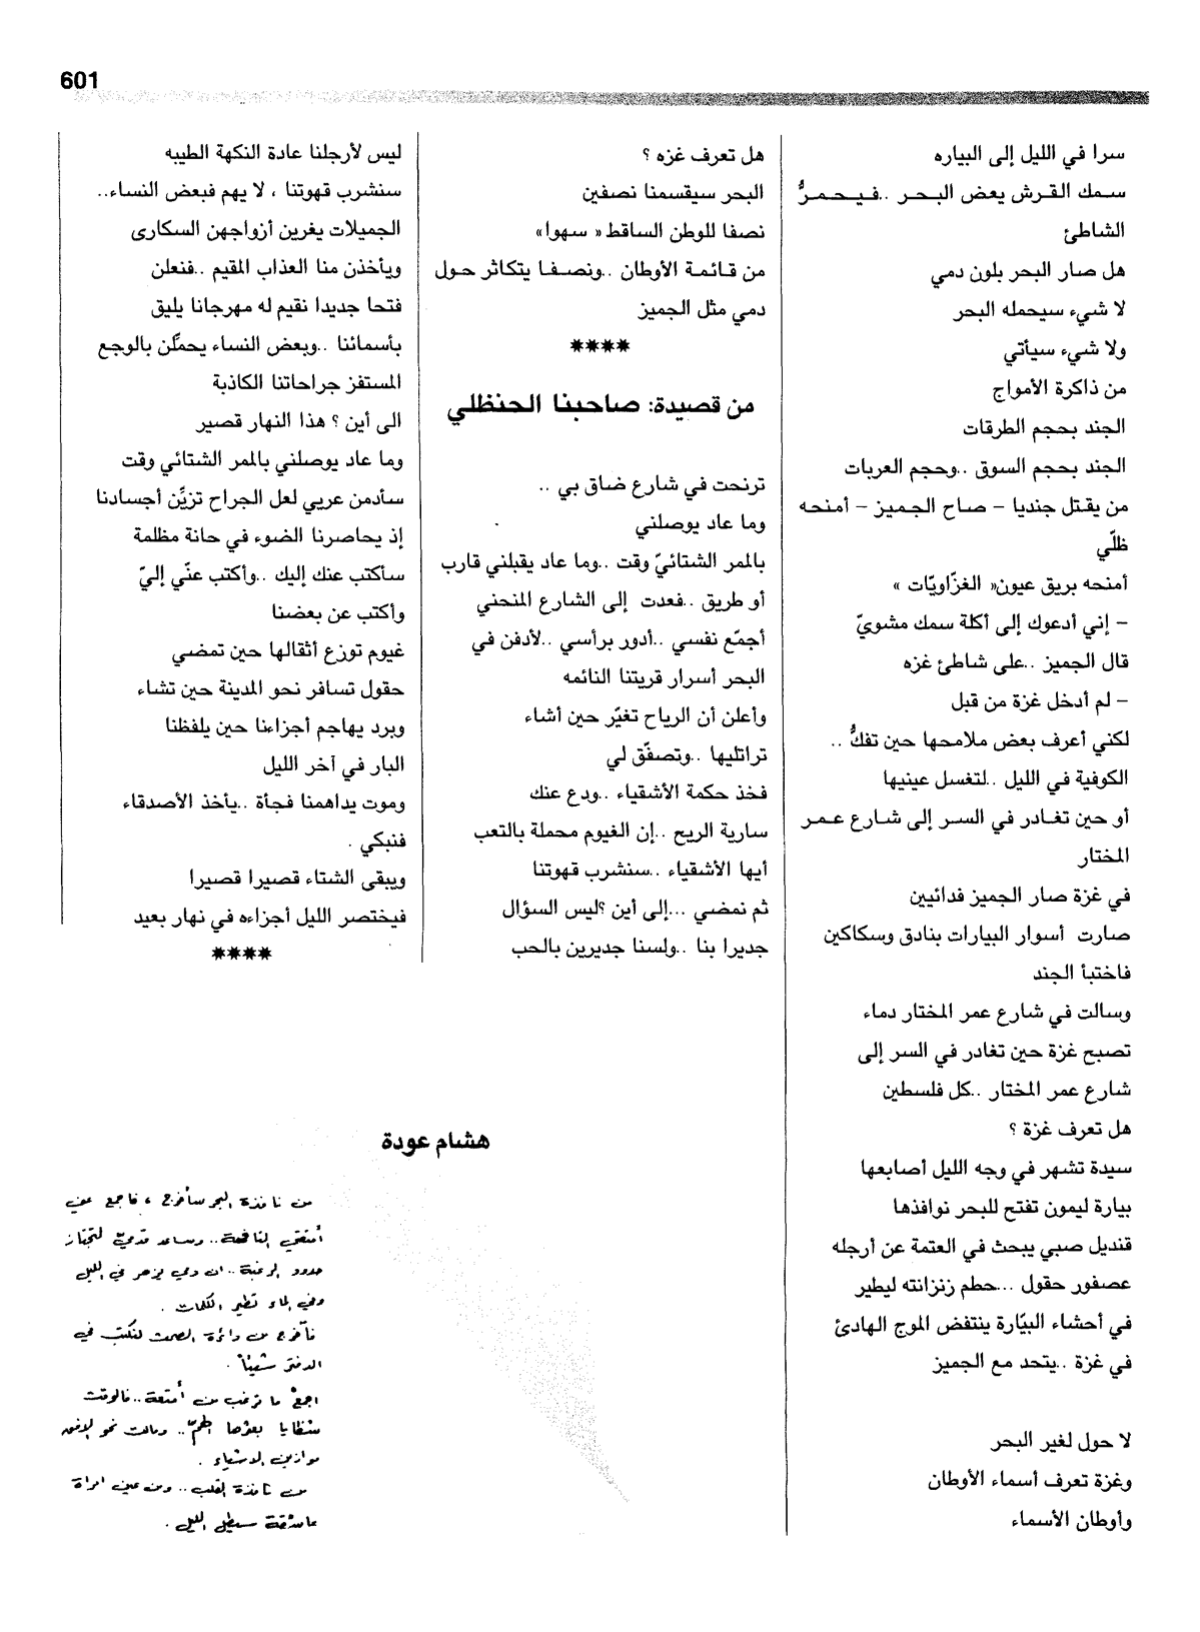 601
سرا في الليل إلى البياره
سمك القرش يعض البحر ..فيحمرُّ
الشاطئ
هل صار البحر بلون دمي
لا شيء سيحمله البحر
ولا شيء سيأتي
من ذاكرة الأمواج
الجند بحجم الطرقات
الجند بحجم السوق ..وحجم العربات
من يقتل جنديا – صاح الجميز – أمنحه
ظلّي
أمنحه بريق عيون« الغزّاويّات »
– إني أدعوك إلى أكلة سمك مشويّ
قال الجميز ..على شاطئ غزه
– لم أدخل غزة من قبل
لكني أعرف بعض ملامحها حين تفكُّ ..
الكوفية في الليل ..لتغسل عينيها
أو حين تغادر في السر إلى شارع عمر
المختار
في غزة صار الجميز فدائيين
صارت أسوار البيارات بنادق وسكاكين
فاختبأ الجند
وسالت في شارع عمر المختار دماء
تصبح غزة حين تغادر في السر إلى
شارع عمر المختار ..كل فلسطين
هل تعرف غزة ؟
سيدة تشهر في وجه الليل أصابعها
بيارة ليمون تفتح للبحر نوافذها
قنديل صبي يبحث في العتمة عن أرجله
عصفور حقول ...حطم زنزانته ليطير
في أحشاء البيّارة ينتفض الموج الهادئ
في غزة ..يتحد مع الجميز
لا حول لغير البحر
وغزة تعرف أسماء الأوطان
وأوطان الأسماء
هل تعرف غزه ؟
البحر سيقسمنا نصفين
نصفا للوطن الساقط« سهوا»
من قائمة الأوطان ..ونصفا يتكاثر حول
دمي مثل الجميز
****
من قصيدة: صاحبنا الحنظلي
ترنحت في شارع ضاق بي ..
وما عاد يوصلني
بالممر الشتائيّ وقت ..وما عاد يقبلني قارب
أو طريق ..فعدت إلى الشارع المنحني
أجمّع نفسي ..أدور برأسي ..لأدفن في
البحر أسرار قريتنا النائمه
وأعلن أن الرياح تغيّر حين أشاء
تراتليها ..وتصفّق لي
فخذ حكمة الأشقياء ..ودع عنك
سارية الريح ..إن الغيوم محملة بالتعب
أيها الأشقياء ..سنشرب قهوتنا
ثم نمضي ...إلى أين ؟ليس السؤال
جديرا بنا ..ولسنا جديرين بالحب
ليس لأرجلنا عادة النكهة الطيبه
سنشرب قهوتنا ، لا يهم فبعض النساء..
الجميلات يغرين أزواجهن السكارى
ويأخذن منا العذاب المقيم ..فنعلن
فتحا جديدا نقيم له مهرجانا يليق
بأسمائنا ..وبعض النساء يحمّلن بالوجع
المستفز جراحاتنا الكاذبة
الى أين ؟ هذا النهار قصير
وما عاد يوصلني بالممر الشتائي وقت
سأدمن عريي لعل الجراح تزيِّن أجسادنا
إذ يحاصرنا الضوء في حانة مظلمة
سأكتب عنك إليك ..وأكتب عنّي إليّ
وأكتب عن بعضنا
غيوم توزع أثقالها حين تمضي
حقول تسافر نحو المدينة حين تشاء
وبرد يهاجم أجزاءنا حين يلفظنا
البار في آخر الليل
وموت يداهمنا فجأة ..يأخذ الأصدقاء
فنبكي .
ويبقى الشتاء قصيرا قصيرا
فيختصر الليل أجزاءه في نهار بعيد
****
هشام عودة
من نافذة البحر سأخرج ، فاجمع عني
أمتعتي الناقصة.. وساعد قدميّ لتجتاز
حدود الرغبة.. ان دمي يزهر في الليل
وفي الماء تطير الكلمات .
فأخرج من دائرة الصمت لنكتب في
الدفتر شيئاً .
اجمع ما ترغب من أمتعة.. فالوقت
شظايا بعثرها الهمّ.. ومالت نحو الأفق
موازين الأشياء .
من نافذة القلب.. ومن عين امرأة
عاشقة سيطل الليل .